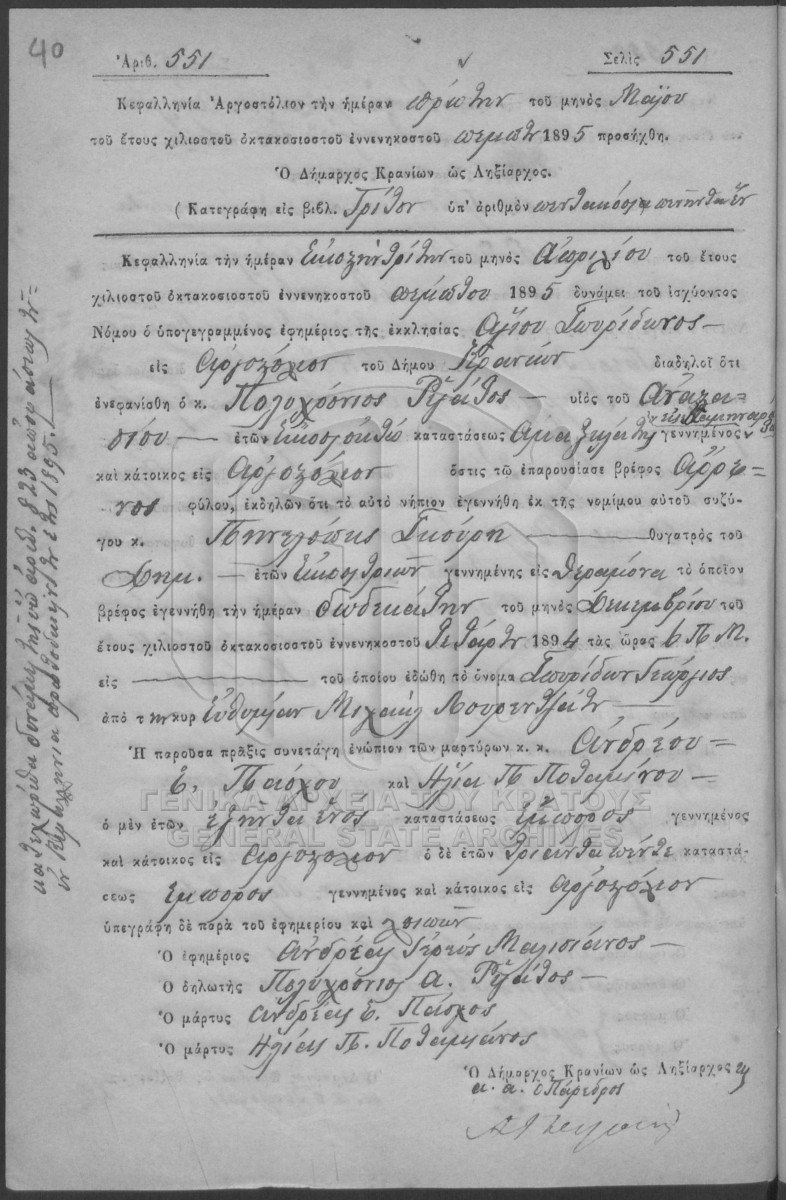 40
Ἀριθ. 551
Σελὶς 551
Κεφαλληνία Ἀργοστόλιον τὴν ἡμέραν πρώτην τοῦ μηνὸς Μαΐου
τοῦ ἔτους χιλιοστοῦ ὀκτακοσιοστοῦ ἐννενηκοστοῦ πέμπτου 1895 προσήχθη.
Ὁ Δήμαρχος Κρανίων ὡς Ληξίαρχος.
(Κατεγράφη εἰς βιβλ. Τρίτον ὑπ' ἀριθμὸν πεντακόσια πεντήντα ἕν
Κεφαλληνία τὴν ἡμέραν Εἰκοστὴν τρίτην τοῦ μηνὸς Ἀπριλίου τοῦ ἔτους
χιλιοστοῦ ὀκτακοσιοστοῦ ἐννενηκοστοῦ πέμπτου 1895 δυνάμει τοῦ ἰσχύοντος
Νόμου ὁ ὑπογεγραμμένος ἐφημέριος τῆς ἐκκλησίας Ἁγίου Σπυρίδωνος
εἰς Ἀργοστόλιον τοῦ Δήμου Κρανίων διαδηλοῖ ὅτι
ἐνεφανίσθη ὁ κ. Πολυχρόνιος υἱὸς τοῦ Ἀναστα-
σίου ἐτῶν Εἰκοσιοκτὼ καταστάσεως Ἁμαξηλάτης γεννημένος
καὶ κάτοικος εἰς Ἀργοστόλιον ὅστις τῷ ἐπαρουσίασε βρέφος ἄρρε-
νος φύλου, ἐκδηλῶν ὅτι τὸ αὐτὸ νήπιον ἐγεννήθη ἐκ τῆς νομίμου αὐτοῦ συζύ-
γου κ. Πηνελόπης Γκούρη θυγατρὸς τοῦ
Δημ. ἐτῶν Εἰκοσιτριῶν γεννημένης εἰς Θεραμόνα τὸ ὁποῖον
βρέφος ἐγεννήθη τὴν ἡμέραν δωδεκάτην τοῦ μηνὸς Δεκεμβρίου τοῦ
ἔτους χιλιοστοῦ ὀκτακοσιοστοῦ ἐννενηκοστοῦ τετάρτου 1894 τὰς ὥρας 6 Π.Μ.
εἰς τοῦ ὁποίου ἐδώθη τὸ ὄνομα Σπυρίδων Γεώργιος
ἀπὸ τὴν κυρ Εὐθυμίαν Μιχαὴλ Λουρεντζάτου
Ἡ παροῦσα πρᾶξις συνετάγη ἐνώπιον τῶν μαρτύρων κ. κ. Ἀνδρέου
Ε. Πάσχου καὶ Ἠλία Π. Ποταμιάνου
ὁ μὲν ἐτῶν ἑξήντα ἑνὸς καταστάσεως ἔμπορος γεννημένος
καὶ κάτοικος εἰς Ἀργοστόλιον ὁ δὲ ἐτῶν τριάντα πέντε καταστά-
σεως ἔμπορος γεννημένος καὶ κάτοικος εἰς Ἀργοστόλιον
ὑπεγράφη δὲ παρὰ τοῦ ἐφημερίου καὶ λοιπῶν
Ὁ ἐφημέριος Ἀνδρέας Ἱερεὺς
Ὁ δηλωτὴς Πολυχρόνιος Α.
Ὁ μάρτυς Ἀνδρέας Ε. Πάσχος
Ὁ μάρτυς Ἠλίας Π. Ποταμιάνος
Ὁ Δήμαρχος Κρανίων ὡς Ληξίαρχος
α. α. ὁ Πάρεδρος
ΓΕΝΙΚΑ ΑΡΧΕΙΑ ΤΟΥ ΚΡΑΤΟΥΣ
GENERAL STATE ARCHIVES